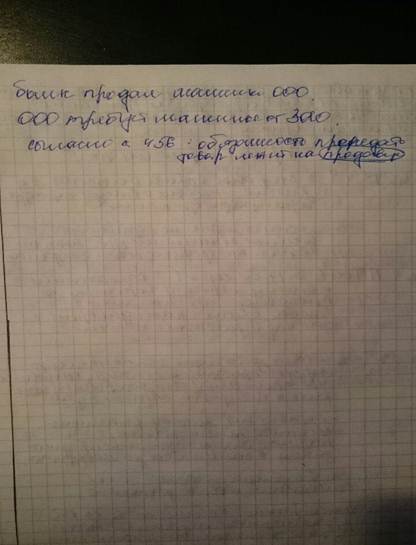 банк продал машины ООО.
ООО требует машины от ЗАО.
согласно с 456 : обязанность передать
товар лежит на продавце